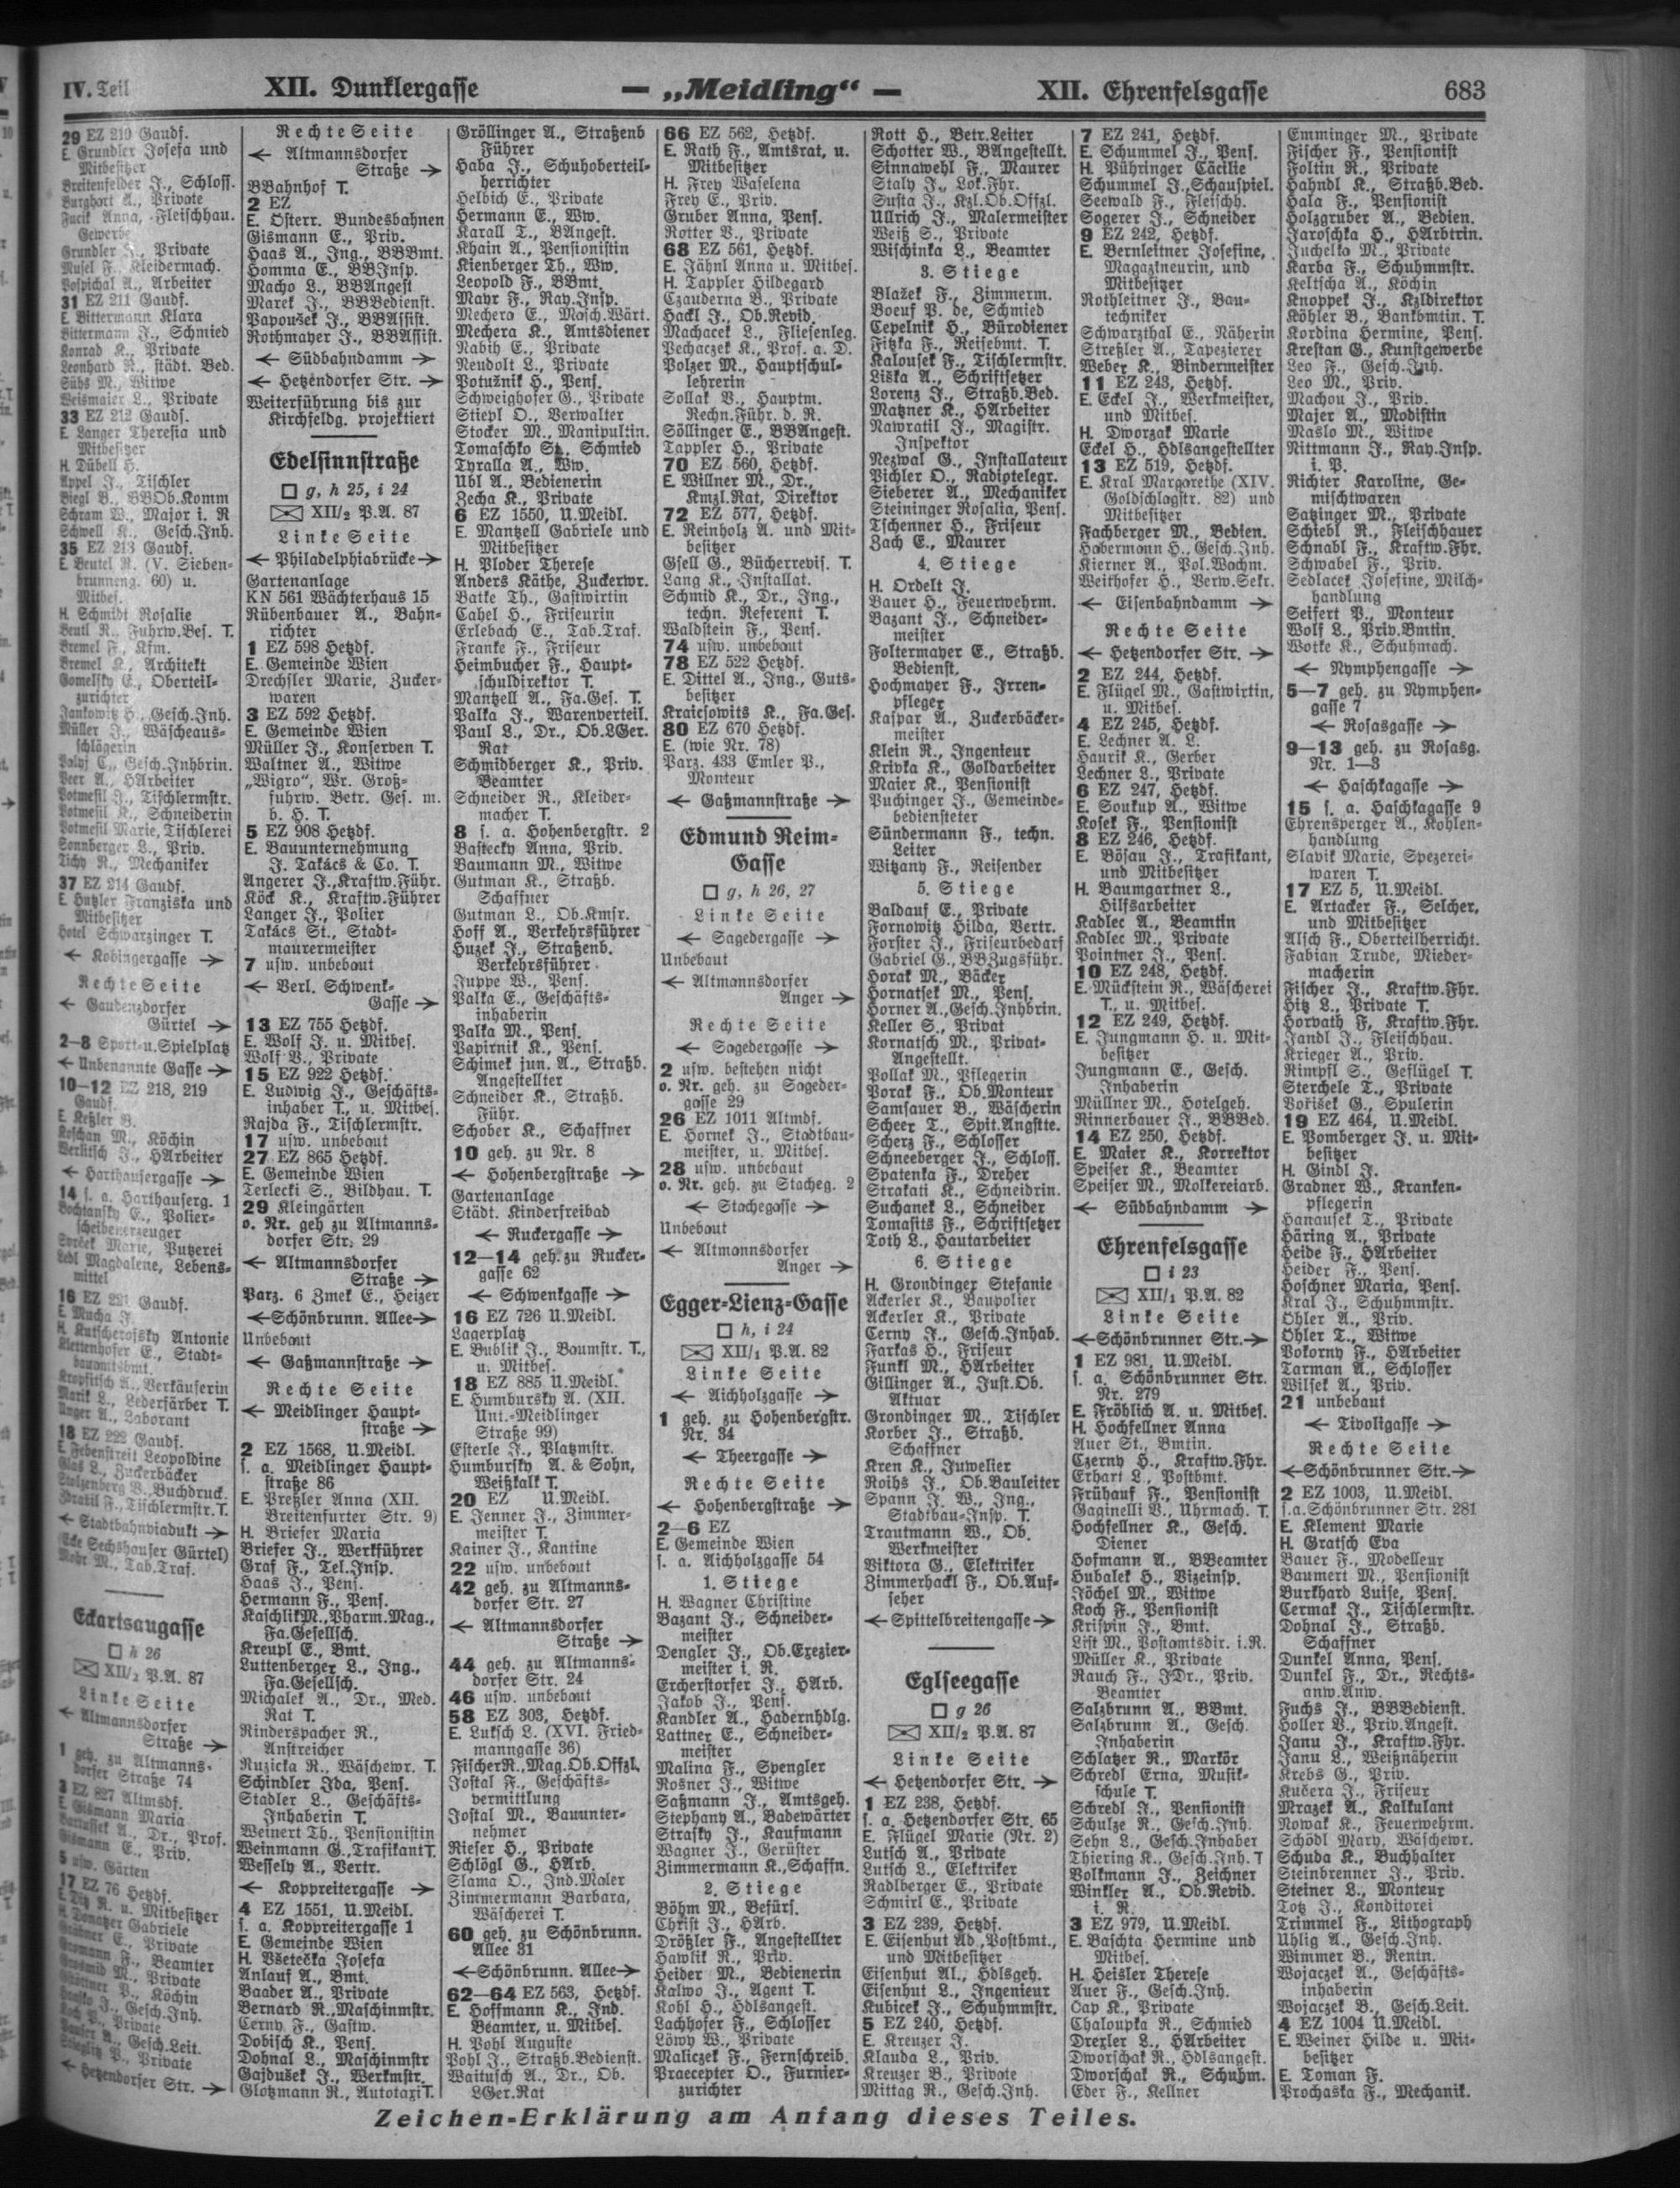 IV. Teil XII. Dunklergasse — „Meidling“ — XII. Ehrenfelsgasse 683
29 EZ 210 Gaudf.
E. Grundler Josefa und
Mitbesitzer
Breitenfelder J., Schloss.
Burghart A., Private
Fucik Anna, Fleischhau.
Gewerbe
Grundler J., Private
Musel F., Kleidermach.
Pospichal A., Arbeiter
31 EZ 211 Gaudf.
E. Bittermann Klara
Bittermann J., Schmied
Konrad K., Private
Leonhard R., städt. Bed.
Sübs M., Witwe
Weismaier L., Private
33 EZ 212 Gaudf.
E. Langer Theresia und
Mitbesitzer
H. Dübell H.
Appel J., Tischler
Biegl B., BBOb.Komm
Schram W., Major i. R
Schwell K., Gesch.Inh.
35 EZ 213 Gaudf.
E. Beutel R. (V. Sieben-
brunneng. 60) u.
Mitbes.
H. Schmidt Rosalie
Beutl R., Fuhrw.Bes. T.
Bremel F., Kfm.
Bremel K., Architekt
Gomelsky E., Oberteil-
zurichter
Jankowitz H., Gesch.Inh.
Müller J., Wäscheaus-
schlägerin
Palyj C., Gesch.Inhbrin.
Peer A., HArbeiter
Potmesil J., Tischlermstr.
Potmesil K., Schneiderin
Potmesil Marie, Tischlerei
Sonnberger L., Priv.
Tichy R., Mechaniker
37 EZ 214 Gaudf.
E. Hutzler Franziska und
Mitbesitzer
Hotel Schwarzinger T.
← Kobingergasse →
Rechte Seite
← Gaudenzdorfer
Gürtel →
2—8 Sport-u.Spielplatz
← Unbenannte Gasse →
10—12 EZ 218, 219
Gaudf.
E. Keßler B.
Koschan M., Köchin
Werlitsch J., HArbeiter
← Harthausergasse →
14 s. a. Harthauserg. 1
Bochtansky E., Polier-
scheibenerzeuger
Marie, Putzerei
Ledl Magdalene, Lebens-
mittel
16 EZ 221 Gaudf.
E. Mucha J.
H. Kutscherofsky Antonie
Klettenhofer E., Stadt-
bauamtsbmt.
Kropfitsch A., Verkäuferin
Marik L., Lederfärber T.
Unger A., Laborant
18 EZ 222 Gaudf.
E. Febenstreit Leopoldine
Glas L., Zuckerbäcker
Stolzenberg B., Buchdruck.
Wratil F., Tischlermstr. T.
← Stadtbahnviadukt →
(Ecke Sechshauser Gürtel)
Mohr M., Tab.Traf.
Eckartsaugasse
□ h 26
XII/2 P.A. 87
Linke Seite
← Altmannsdorfer
Straße →
1 geh. zu Altmanns-
dorfer Straße 74
3 EZ 827 Altmsdf.
E. Gismann Maria
A., Dr., Prof.
Gismann E., Priv.
5 usw. Gärten
17 EZ 76 Hetzdf.
E. Titz R. u. Mitbesitzer
H. Donatzer Gabriele
E., Private
Gromann F., Beamter
M., Private
P., Köchin
J., Gesch.Inh.
P., Private
A., Gesch.Leit.
Stieglitz P., Private
← Hetzendorfer Str. →
Rechte Seite
← Altmannsdorfer
Straße →
BBahnhof T.
2 EZ
E. Österr. Bundesbahnen
Gismann E., Priv.
Haas A., Ing., BBBmt.
Homma E., BBInsp.
Macho L., BBAngest
Marek J., BBBedienst.
Papoušek J., BBAssist.
Rothmayer J., BBAssist.
← Südbahndamm →
← Hetzendorfer Str. →
Weiterführung bis zur
Kirchfeldg. projektiert
Edelsinnstraße
□ g, h 25, i 24
XII/2 P.A. 87
Linke Seite
← Philadelphiabrücke →
Gartenanlage
KN 561 Wächterhaus 15
Rübenbauer A., Bahn-
richter
1 EZ 598 Hetzdf.
E. Gemeinde Wien
Drechsler Marie, Zucker-
waren
3 EZ 592 Hetzdf.
E. Gemeinde Wien
Müller J., Konserven T.
Waltner A., Witwe
„Wigro“, Wr. Groß-
fuhrw. Betr. Ges. m.
b. H. T.
5 EZ 908 Hetzdf.
E. Bauunternehmung
J. Takács & Co. T.
Angerer J., Kraftw.Führ.
Köck K., Kraftw.Führer
Langer J., Polier
Takács St., Stadt-
maurermeister
7 usw. unbebaut
← Verl. Schwenk-
Gasse →
13 EZ 755 Hetzdf.
E. Wolf J. u. Mitbes.
Wolf B., Private
15 EZ 922 Hetzdf.
E. Ludwig J., Geschäfts-
inhaber T., u. Mitbes.
Rajda F., Tischlermstr.
17 usw. unbebaut
27 EZ 865 Hetzdf.
E. Gemeinde Wien
Terlecki S., Bildhau. T.
29 Kleingärten
o. Nr. geh zu Altmanns-
dorfer Str. 29
← Altmannsdorfer
Straße →
Parz. 6 Zmek E., Heizer
← Schönbrunn. Allee →
Unbebaut
← Gaßmannstraße →
Rechte Seite
← Meidlinger Haupt-
straße →
2 EZ 1568, U.Meidl.
s. a. Meidlinger Haupt-
straße 86
E. Preßler Anna (XII.
Breitenfurter Str. 9)
H. Briefer Maria
Briefer J., Werkführer
Graf F., Tel.Insp.
Haas J., Pens.
Hermann F., Pens.
Kaschlik M., Pharm.Mag.,
Fa.Gesellsch.
Kreupl E., Bmt.
Luttenberger L., Ing.,
Fa.Gesellsch.
Michalek A., Dr., Med.
Rat T.
Rinderspacher R.,
Anstreicher
Ruzicka R., Wäschewr. T.
Schindler Ida, Pens.
Stadler L., Geschäfts-
Inhaberin T.
Weinert Th., Pensionistin
Weinmann G., Trafikant T.
Wessely A., Vertr.
← Koppreitergasse →
4 EZ 1551, U.Meidl.
s. a. Koppreitergasse 1
E. Gemeinde Wien
H. Všetečka Josefa
Anlauf A., Bmt.
Baader A., Private
Bernard R., Maschinmstr.
Cerny F., Gastw.
Dobisch K., Pens.
Dohnal L., Maschinmstr
Gajdušek J., Werkmstr.
Glotzmann R., Autotaxi T.
Gröllinger A., Straßenb
Führer
Haba J., Schuhoberteil-
herrichter
Helbich E., Private
Hermann E., Ww.
Karall T., BAngest.
Khain A., Pensionistin
Kienberger Th., Ww.
Leopold F., BBmt.
Mayr F., Ray.Insp.
Mechera E., Masch.Wärt.
Mechera K., Amtsdiener
Nabih E., Private
Neudolt L., Private
Potužnik H., Pens.
Schweighofer G., Private
Stiepl O., Verwalter
Stocker M., Manipultin.
Tomaschko St., Schmied
Tyralla A., Ww.
Übl A., Bedienerin
Zecha K., Private
6 EZ 1550, U.Meidl.
E. Mantzell Gabriele und
Mitbesitzer
H. Ploder Therese
Anders Käthe, Zuckerwr.
Batke Th., Gastwirtin
Cabel H., Friseurin
Erlebach E., Tab.Traf.
Franke F., Friseur
Heimbucher F., Haupt-
schuldirektor T.
Mantzell A., Fa.Ges. T.
Palka J., Warenverteil.
Paul L., Dr., Ob.LGer.
Rat
Schmidberger K., Priv.
Beamter
Schneider R., Kleider-
macher T.
8 s. a. Hohenbergstr. 2
Bastecky Anna, Priv.
Baumann M., Witwe
Gutman K., Straßb.
Schaffner
Gutman L., Ob.Kmsr.
Hoff A., Verkehrsführer
Huzek J., Straßenb.
Verkehrsführer
Juppe W., Pens.
Palka E., Geschäfts-
inhaberin
Palka M., Pens.
Papirnik K., Pens.
Schimek jun. A., Straßb.
Angestellter
Schneider K., Straßb.
Führ.
Schober K., Schaffner
10 geh. zu Nr. 8
← Hohenbergstraße →
Gartenanlage
Städt. Kinderfreibad
← Ruckergasse →
12—14 geh. zu Rucker-
gasse 62
← Schwenkgasse →
16 EZ 726 U.Meidl.
Lagerplatz
E. Bublik J., Baumstr. T.,
u. Mitbes.
18 EZ 885 U.Meidl.
E. Humbursky A. (XII.
Unt.-Meidlinger
Straße 99)
Esterle J., Platzmstr.
Humbursky A. & Sohn,
Weißkalk T.
20 EZ U.Meidl.
E. Jenner J., Zimmer-
meister T.
Kainer J., Kantine
22 usw. unbebaut
42 geh. zu Altmanns-
dorfer Str. 27
← Altmannsdorfer
Straße →
44 geh. zu Altmanns-
dorfer Str. 24
46 usw. unbebaut
58 EZ 303, Hetzdf.
E. Luksch L. (XVI. Fried-
manngasse 36)
Fischer R., Mag.Ob.Offzl.
Jostal F., Geschäfts-
vermittlung
Jostal M., Bauunter-
nehmer
Rieser H., Private
Schlögl G., HArb.
Slama O., Ind.Maler
Zimmermann Barbara,
Wäscherei T.
60 geh. zu Schönbrunn.
Allee 31
← Schönbrunn. Allee →
62—64 EZ 563, Hetzdf.
E. Hoffmann K., Ind.
Beamter, u. Mitbes.
H. Pohl Auguste
Pohl J., Straßb.Bedienst.
Waitusch A., Dr., Ob.
LGer.Rat
66 EZ 562, Hetzdf.
E. Rath F., Amtsrat, u.
Mitbesitzer
H. Frey Waselena
Frey E., Priv.
Gruber Anna, Pens.
Rotter V., Private
68 EZ 561, Hetzdf.
E. Jähnl Anna u. Mitbes.
H. Tappler Hildegard
Czauderna B., Private
Hackl J., Ob.Revid.
Machacek L., Fliesenleg.
Pechaczek K., Prof. a. D.
Polzer M., Hauptschul-
lehrerin
Sollak V., Hauptm.
Rechn.Führ. d. R.
Söllinger E., BBAngest.
Tappler H., Private
70 EZ 560, Hetzdf.
E. Willner M., Dr.,
Kmzl.Rat, Direktor
72 EZ 577, Hetzdf.
E. Reinholz A. und Mit-
besitzer
Gsell G., Bücherrevis. T.
Lang K., Installat.
Schmid K., Dr., Ing.,
techn. Referent T.
Waldstein F., Pens.
74 usw. unbebaut
78 EZ 522 Hetzdf.
E. Dittel A., Ing., Guts-
besitzer
Kraicsowits K., Fa.Ges.
80 EZ 670 Hetzdf.
E. (wie Nr. 78)
Parz. 433 Emler P.,
Monteur
← Gaßmannstraße →
Edmund Reim-
Gasse
□ g, h 26, 27
Linke Seite
← Sagedergasse →
Unbebaut
← Altmannsdorfer
Anger →
Rechte Seite
← Sagedergasse →
2 usw. bestehen nicht
o. Nr. geh. zu Sageder-
gasse 29
26 EZ 1011 Altmdf.
E. Hornek J., Stadtbau-
meister, u. Mitbes.
28 usw. unbebaut
o. Nr. geh. zu Stacheg. 2
← Stachegasse →
Unbebaut
← Altmannsdorfer
Anger →
Egger-Lienz-Gasse
□ h, i 24
XII/1 P.A. 82
Linke Seite
← Aichholzgasse →
1 geh. zu Hohenbergstr.
Nr. 34
← Theergasse →
Rechte Seite
← Hohenbergstraße →
2—6 EZ
E. Gemeinde Wien
s. a. Aichholzgasse 54
1. Stiege
H. Wagner Christine
Bazant J., Schneider-
meister
Dengler J., Ob.Exezier-
meister i. R.
Ercherstorfer J., HArb.
Jakob J., Pens.
Kandler A., Hadernhdlg.
Lattner E., Schneider-
meister
Malina F., Spengler
Rosner J., Witwe
Saßmann J., Amtsgeh.
Stephany A., Badewärter
Strasky J., Kaufmann
Wagner J., Gerüster
Zimmermann K., Schaffn.
2. Stiege
Böhm M., Befürs.
Christ J., HArb.
Drößler F., Angestellter
Hawlik R., Priv.
Heider M., Bedienerin
Kalwo J., Agent T.
Kohl H., Hdlsangest.
Lachhofer F., Schlosser
Löwy W., Private
Maliczek F., Fernschreib.
Praecepter O., Furnier-
zurichter
Rott H., Betr.Leiter
Schotter W., BAngestellt.
Sinnawehl F., Maurer
Staly J., Lok.Fhr.
Susta J., Kzl.Ob.Offzl.
Ullrich J., Malermeister
Weiß S., Private
Wischinka L., Beamter
3. Stiege
Blažek F., Zimmerm.
Boeuf P. de, Schmied
Cepelnik H., Bürodiener
Fitzka F., Reisebmt. T.
Kalousek F., Tischlermstr.
Liska A., Schriftsetzer
Lorenz J., Straßb.Bed.
Matzner K., HArbeiter
Nawratil J., Magistr.
Inspektor
Nezwal G., Installateur
Pichler O., Radiotelegr.
Sieberer A., Mechaniker
Steininger Rosalia, Pens.
Tschenner H., Friseur
Zach E., Maurer
4. Stiege
H. Ordelt J.
Bauer H., Feuerwehrm.
Bazant J., Schneider-
meister
Foltermayer E., Straßb.
Bedienst.
Hochmayer F., Irren-
pfleger
Kaspar A., Zuckerbäcker-
meister
Klein R., Ingenieur
Krivka K., Goldarbeiter
Maier K., Pensionist
Puchinger J., Gemeinde-
bediensteter
Sündermann F., techn.
Leiter
Witzany F., Reisender
5. Stiege
Baldauf E., Private
Fornowitz Hilda, Vertr.
Forster J., Friseurbedarf
Gabriel G., BBZugsführ.
Horak M., Bäcker
Hornatsek M., Pens.
Horner A., Gesch.Inhbrin.
Keller S., Privat
Kornatsch M., Privat-
Angestellt.
Pollak M., Pflegerin
Porak F., Ob.Monteur
Samsauer B., Wäscherin
Scheer T., Spit.Angstte.
Scherz F., Schlosser
Schneeberger J., Schloss.
Spatenka F., Dreher
Strakati K., Schneidrin.
Suchanek L., Schneider
Tomasits F., Schriftsetzer
Toth L., Hautarbeiter
6. Stiege
H. Grondinger Stefanie
Ackerler K., Baupolier
Ackerler K., Private
Cerny J., Gesch.Inhab.
Farkas H., Friseur
Funkl M., HArbeiter
Gillinger A., Just.Ob.
Aktuar
Grondinger M., Tischler
Korber J., Straßb.
Schaffner
Kren K., Juwelier
Roihs J., Ob.Bauleiter
Spann J. W., Ing.,
Stadtbau-Insp. T.
Trautmann W., Ob.
Werkmeister
Viktora G., Elektriker
Zimmerhackl F., Ob.Auf-
seher
← Spittelbreitengasse →
Eglseegasse
□ g 26
XII/2 P.A. 87
Linke Seite
← Hetzendorfer Str. →
1 EZ 238, Hetzdf.
s. a. Hetzendorfer Str. 65
E. Flügel Marie (Nr. 2)
Lutsch A., Private
Lutsch L., Elektriker
Radlberger E., Private
Schmirl E., Private
3 EZ 239, Hetzdf.
E. Eisenhut Ad., Postbmt.,
und Mitbesitzer
Eisenhut Al., Hdlsgeh.
Eisenhut L., Ingenieur
Kubicek J., Schuhmmstr.
5 EZ 240, Hetzdf.
E. Kreuzer J.
Klauda L., Priv.
Kreuzer B., Private
Mittag R., Gesch.Inh.
7 EZ 241, Hetzdf.
E. Schummel J., Pens.
H. Pühringer Cäcilie
Schummel J., Schauspiel.
Seewald F., Fleischh.
Sogerer J., Schneider
9 EZ 242, Hetzdf.
E. Bernleitner Josefine,
Magazineurin, und
Mitbesitzer
Rothleitner J., Bau-
techniker
Schwarzthal E., Näherin
Streßler A., Tapezierer
Weber K., Bindermeister
11 EZ 243, Hetzdf.
E. Eckel J., Werkmeister,
und Mitbes.
H. Dworzak Marie
Eckel H., Hdlsangestellter
13 EZ 519, Hetzdf.
E. Kral Margarethe (XIV.
Goldschlagstr. 82) und
Mitbesitzer
Fachberger M., Bedien.
Habermann H., Gesch.Inh.
Kierner A., Pol.Wachm.
Weithofer H., Verw.Sekr.
← Eisenbahndamm →
Rechte Seite
← Hetzendorfer Str. →
2 EZ 244, Hetzdf.
E. Flügel M., Gastwirtin,
u. Mitbes.
4 EZ 245, Hetzdf.
E. Lechner A. L.
Haurik K., Gerber
Lechner L., Private
6 EZ 247, Hetzdf.
E. Soukup A., Witwe
Kosek F., Pensionist
8 EZ 246, Hetzdf.
E. Bösau J., Trafikant,
und Mitbesitzer
H. Baumgartner L.,
Hilfsarbeiter
Kadlec A., Beamtin
Kadlec M., Private
Pointner J., Pens.
10 EZ 248, Hetzdf.
E. Mückstein R., Wäscherei
T., u. Mitbes.
12 EZ 249, Hetzdf.
E. Jungmann H. u. Mit-
besitzer
Jungmann E., Gesch.
Inhaberin
Müllner M., Hotelgeh.
Rinnerbauer J., BBBed.
14 EZ 250, Hetzdf.
E. Maier K., Korrektor
Speiser K., Beamter
Speiser M., Molkereiarb.
← Südbahndamm →
Ehrenfelsgasse
□ i 23
XII/1 P.A. 82
Linke Seite
← Schönbrunner Str. →
1 EZ 981, U.Meidl.
s. a. Schönbrunner Str.
Nr. 279
E. Fröhlich A. u. Mitbes.
H. Hochfellner Anna
Auer St., Bmtin.
Czerny H., Kraftw.Fhr.
Erhart L., Postbmt.
Frühauf F., Pensionist
Gaginelli V., Uhrmach. T.
Hochfellner K., Gesch.
Diener
Hofmann A., BBeamter
Hubalek H., Vizeinsp.
Jöchel M., Witwe
Koch F., Pensionist
Krispin J., Bmt.
List M., Postamtsdir. i.R.
Müller K., Private
Rauch F., JDr., Priv.
Beamter
Salzbrunn A., BBmt.
Salzbrunn A., Gesch.
Inhaberin
Schlatzer R., Markör
Schredl Erna, Musik-
schule T.
Schredl J., Pensionist
Schulze R., Gesch.Inh.
Sehn L., Gesch.Inhaber
Thiering K., Gesch.Inh. T
Volkmann J., Zeichner
Winkler A., Ob.Revid.
i. R.
3 EZ 979, U.Meidl.
E. Baschta Hermine und
Mitbes.
H. Heisler Therese
Auer F., Gesch.Inh.
Cap K., Private
Chaloupka R., Schmied
Drexler L., HArbeiter
Dworschak R., Hdlsangest.
Dworschak R., Schuhm.
Eder F., Kellner
Emminger M., Private
Fischer F., Pensionist
Foltin R., Private
Hahndl K., Straßb.Bed.
Hala F., Pensionist
Holzgruber A., Bedien.
Jaroschka H., HArbtrin.
Juchelka M., Private
Karba F., Schuhmmstr.
Keltscha A., Köchin
Knoppek J., Kzldirektor
Köhler B., Bankbmtin. T.
Kordina Hermine, Pens.
Krestan G., Kunstgewerbe
Leo F., Gesch.Inh.
Leo M., Priv.
Machou J., Priv.
Majer A., Modistin
Maslo M., Witwe
Nittmann J., Ray.Insp.
i. P.
Richter Karoline, Ge-
mischtwaren
Satzinger M., Private
Schiebl R., Fleischhauer
Schnabl F., Kraftw.Fhr.
Schwabel F., Priv.
Sedlacek Josefine, Milch-
handlung
Seifert P., Monteur
Wolf L., Priv.Bmtin.
Wotke K., Schuhmach.
← Nymphengasse →
5—7 geh. zu Nymphen-
gasse 7
← Rosasgasse →
9—13 geh. zu Rosasg.
Nr. 1—3
← Haschkagasse →
15 s. a. Haschkagasse 9
Ehrensperger A., Kohlen-
handlung
Slavik Marie, Spezerei-
waren T.
17 EZ 5, U.Meidl.
E. Artacker F., Selcher,
und Mitbesitzer
Alsch F., Oberteilherricht.
Fabian Trude, Mieder-
macherin
Fischer J., Kraftw.Fhr.
Hitz L., Private T.
Horvath F., Kraftw.Fhr.
Jandl J., Fleischhau.
Krieger A., Priv.
Rimpfl S., Geflügel T.
Sterchele T., Private
Voříšek G., Spulerin
19 EZ 464, U.Meidl.
E. Pomberger J. u. Mit-
besitzer
H. Gindl J.
Gradner W., Kranken-
pflegerin
Hanausek T., Private
Häring A., Private
Heide F., HArbeiter
Heider F., Pens.
Hoschner Maria, Pens.
Kral J., Schuhmmstr.
Öhler A., Priv.
Öhler T., Witwe
Pokorny F., HArbeiter
Tarman A., Schlosser
Wilsek A., Priv.
21 unbebaut
← Tivoligasse →
Rechte Seite
← Schönbrunner Str. →
2 EZ 1003, U.Meidl.
s.a. Schönbrunner Str. 281
E. Klement Marie
H. Gratsch Eva
Bauer F., Modelleur
Baumert M., Pensionist
Burkhard Luise, Pens.
Cermak J., Tischlermstr.
Dohnal J., Straßb.
Schaffner
Dunkel Anna, Pens.
Dunkel F., Dr., Rechts-
anw.Anw.
Fuchs J., BBBedienst.
Holler V., Priv.Angest.
Janu J., Kraftw.Fhr.
Janu L., Weißnäherin
Krebs G., Priv.
Kučera J., Friseur
Mrazek A., Kalkulant
Nowak K., Feuerwehrm.
Schödl Mary, Wäschewr.
Schuda K., Buchhalter
Steinbrenner J., Priv.
Steiner L., Monteur
Totz J., Konditorei
Trimmel F., Lithograph
Uhlig A., Gesch.Inh.
Wimmer B., Rentn.
Wojaczek A., Geschäfts-
inhaberin
Wojaczek B., Gesch.Leit.
4 EZ 1004 U.Meidl.
E. Weiner Hilde u. Mit-
besitzer
E. Toman F.
Prochaska F., Mechanik.
Zeichen-Erklärung am Anfang dieses Teiles.